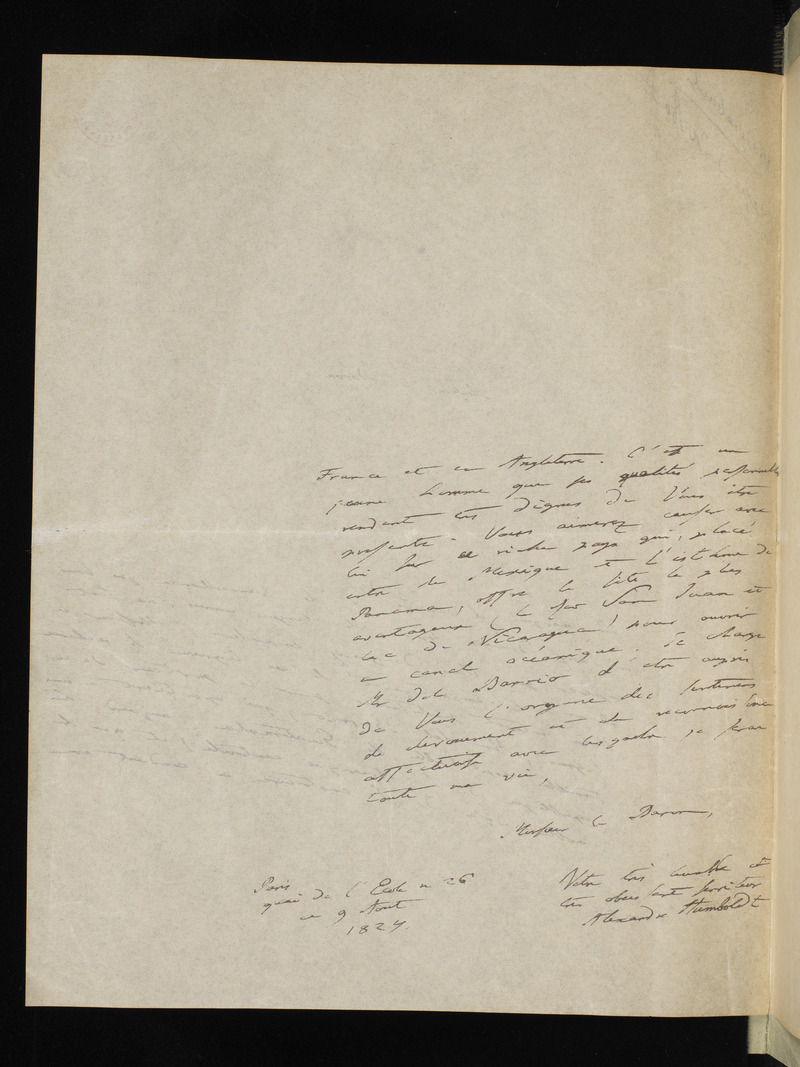 France et en Angleterre. C'est un
jeune homme que ses qualités personnelles
rendent très dignes de Vous être
présenté. Vous aimerez causer avec
lui sur ce riche pays qui, placé
entre le Mexique et l'isthme de
Panama, offre le site le plus
avantageux (le Rio San Juan et
lac de Nicaragua) pour ouvrir
un canal océanique. Je charge
Mr Del Barrio d'etre auprès
de Vous l'organe des sentimens
de devouement et de reconnoissance
affectueuse avec lesquels je serai
toute ma vie,
Monsieur le Baron,
Votre très humble et
très obeissant serviteur
Alexandre Humboldt
Paris
quai de l'Ecole n 26
ce 9 Aout
1824.